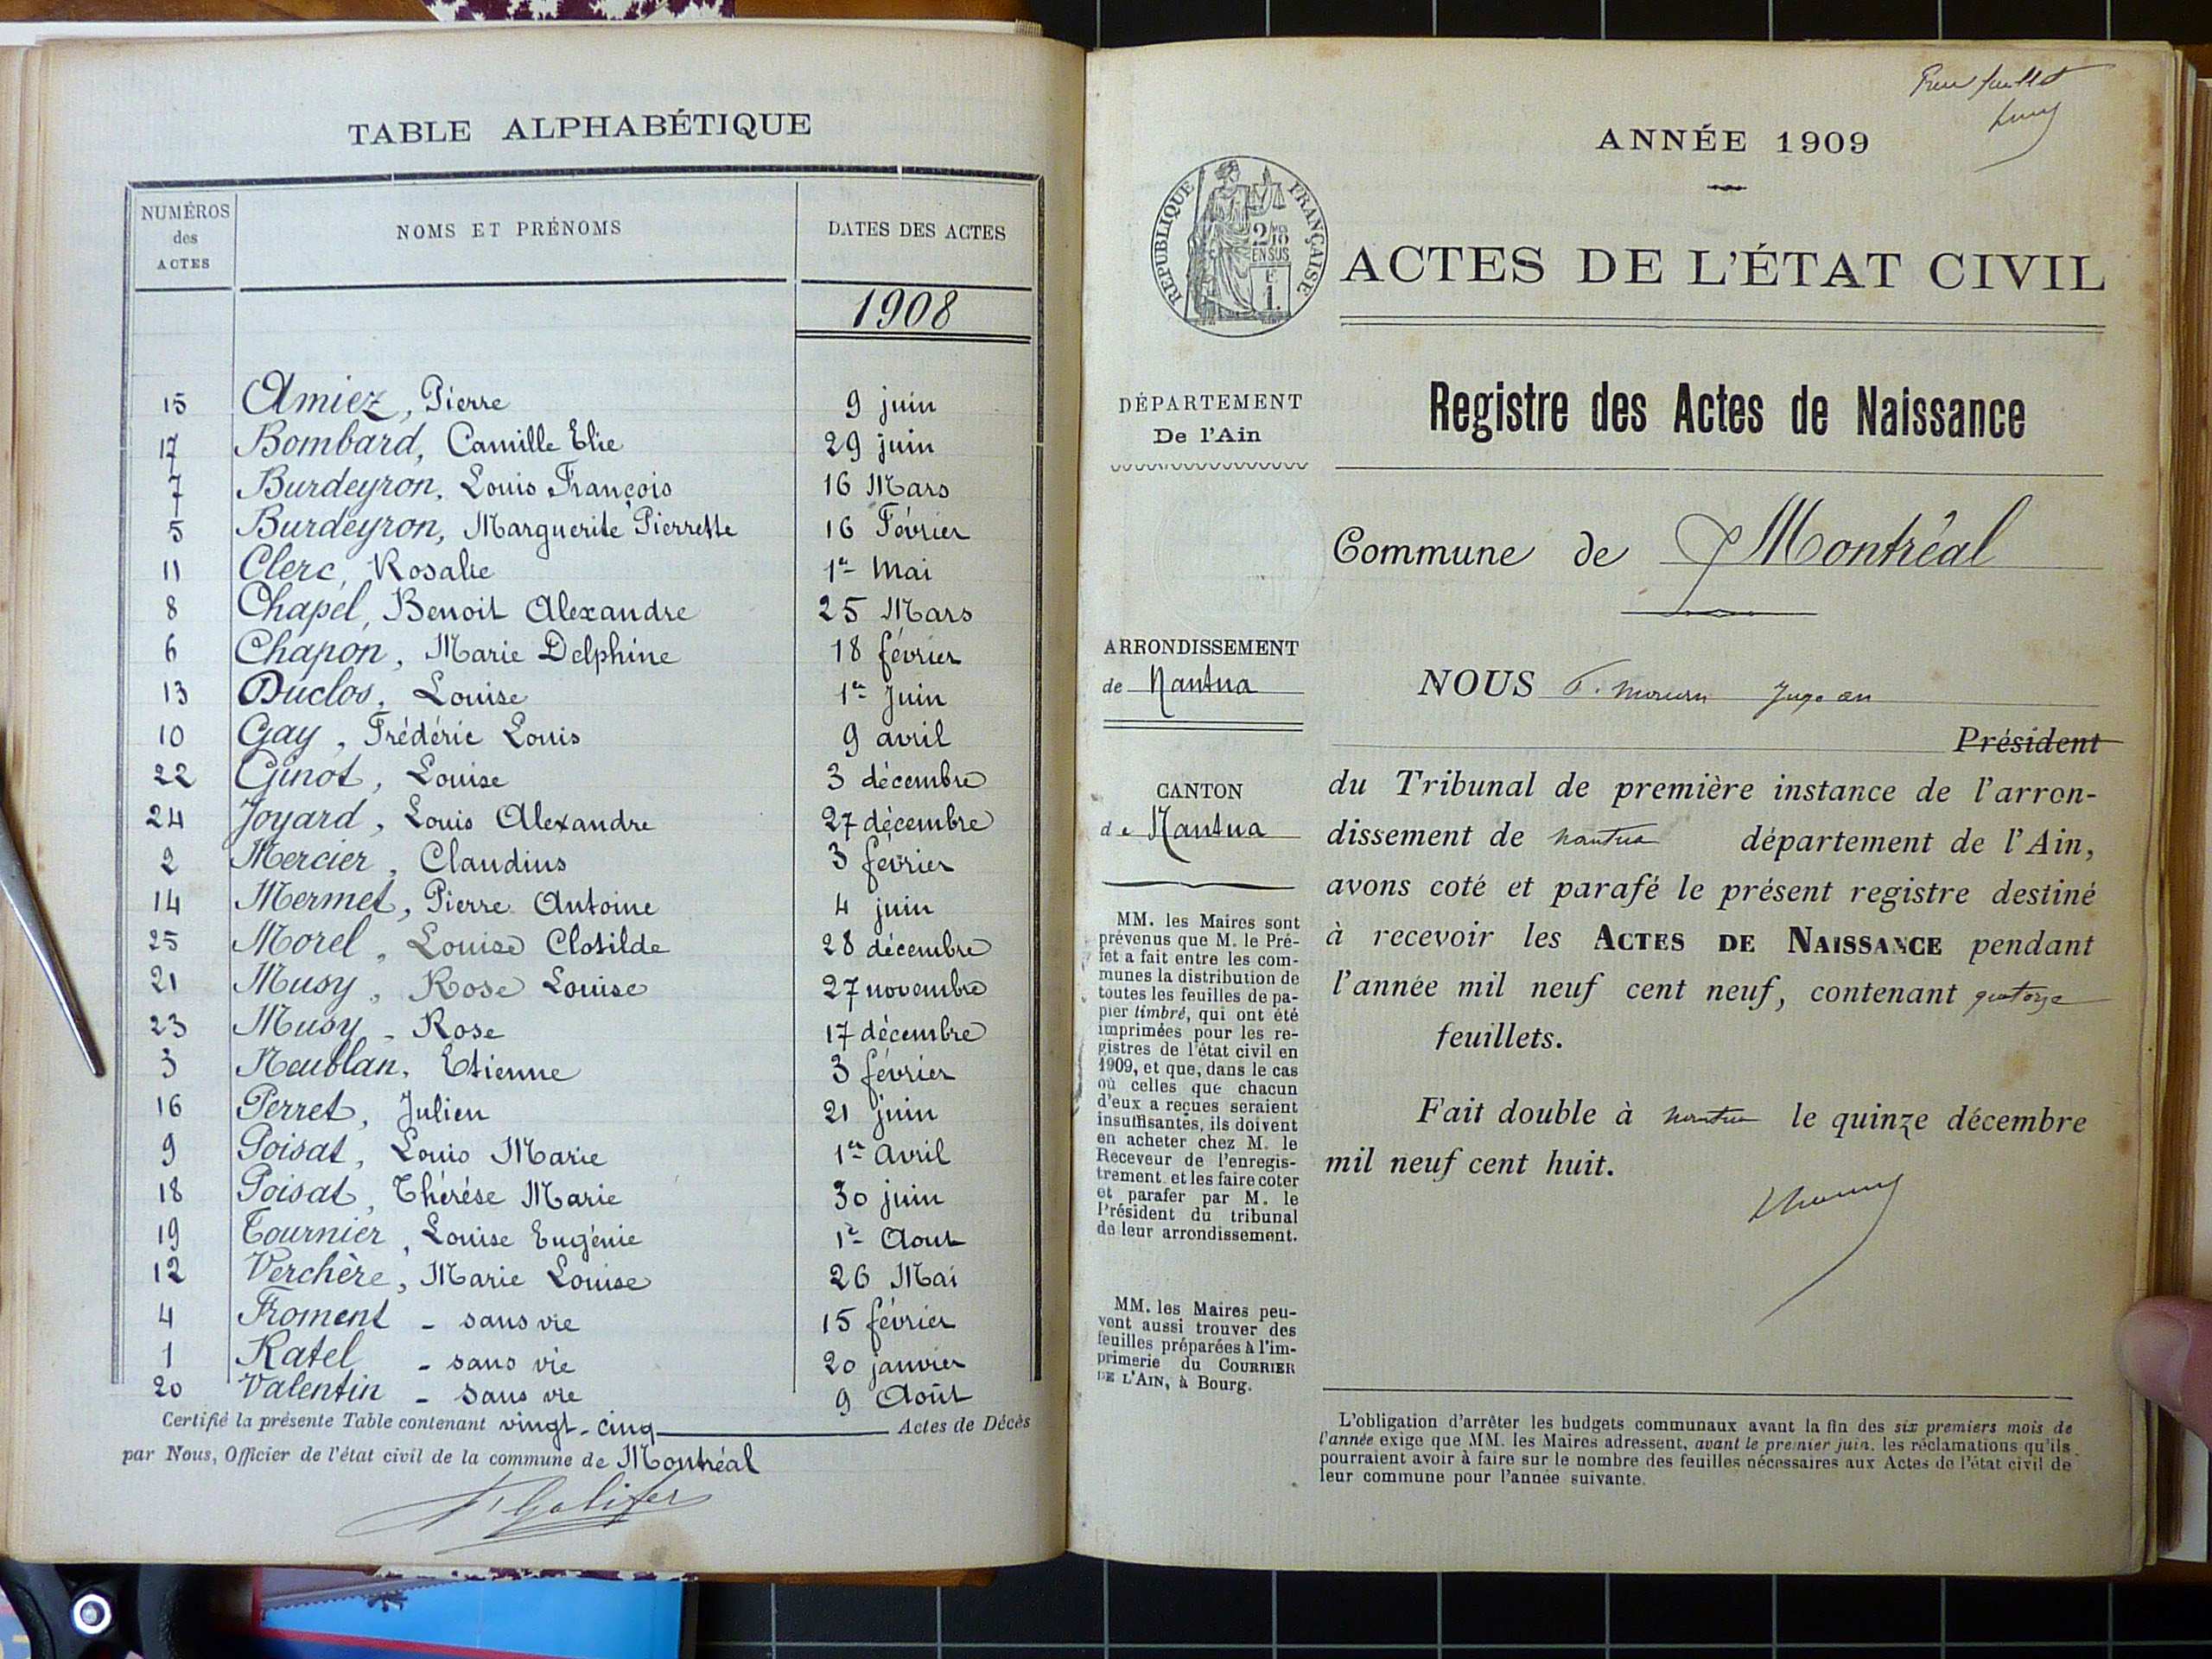 TABLE ALPHABÉTIQUE
NUMÉROS des ACTES
NOMS ET PRÉNOMS
DATES DES ACTES
1908
15 Amiez, Pierre 9 juin
17 Bombard, Camille Elie 29 juin
7 Burdeyron, Louis François 16 Mars
5 Burdeyron, Marguerite Pierrette 16 Février
11 Clerc, Rosalie 1er Mai
8 Chapel, Benoit Alexandre 25 Mars
6 Chapon, Marie Delphine 18 février
13 Duclos, Louise 1er Juin
10 Gay, Frédéric Louis 9 avril
22 Ginot, Louise 3 décembre
24 Joyard, Louis Alexandre 27 décembre
2 Mercier, Claudius 3 février
14 Mermet, Pierre Antoine 4 juin
25 Morel, Louise Clotilde 28 décembre
21 Musy, Rose Louise 27 novembre
23 Musy - Rose 17 décembre
3 Neublan, Etienne 3 février
16 Perret, Julien 21 juin
9 Poisat, Louis Marie 1er Avril
18 Poisat, Thérèse Marie 30 juin
19 Tournier, Louise Eugénie 1er Aout
12 Verchère, Marie Louise 26 Mai
4 Froment - sans vie 15 février
1 Ratel - sans vie 20 janvier
20 Valentin - sans vie 9 Août
Certifié la présente Table contenant vingt-cinq Actes de Décès
par Nous, Officier de l'état civil de la commune de Montréal
ANNÉE 1909
RÉPUBLIQUE FRANÇAISE
2/10
EN SUS
ACTES DE L'ÉTAT CIVIL
DÉPARTEMENT
De l'Ain
Registre des Actes de Naissance
Commune de Montréal
ARRONDISSEMENT
de Nantua
CANTON
de Nantua
MM. les Maires sont
prévenus que M. le Pré-
fet a fait entre les com-
munes la distribution de
toutes les feuilles de pa-
pier timbré, qui ont été
imprimées pour les re-
gistres de l'état civil en
1909, et que, dans le cas
où celles que chacun
d'eux a reçues seraient
insuffisantes, ils doivent
en acheter chez M. le
Receveur de l'enregis-
trement et les faire coter
et parafer par M. le
Président du tribunal
de leur arrondissement.
MM. les Maires peu-
vent aussi trouver des
feuilles préparées à l'im-
primerie du COURRIER
DE L'AIN, à Bourg.
NOUS
Président
du Tribunal de première instance de l'arron-
dissement de nantua département de l'Ain,
avons coté et parafé le présent registre destiné
à recevoir les ACTES DE NAISSANCE pendant
l'année mil neuf cent neuf, contenant quatorze
feuillets.
Fait double à nantua le quinze décembre
mil neuf cent huit.
L'obligation d'arrêter les budgets communaux avant la fin des six premiers mois de
l'année exige que MM. les Maires adressent, avant le premier juin, les réclamations qu'ils
pourraient avoir à faire sur le nombre des feuilles nécessaires aux Actes de l'état civil de
leur commune pour l'année suivante.